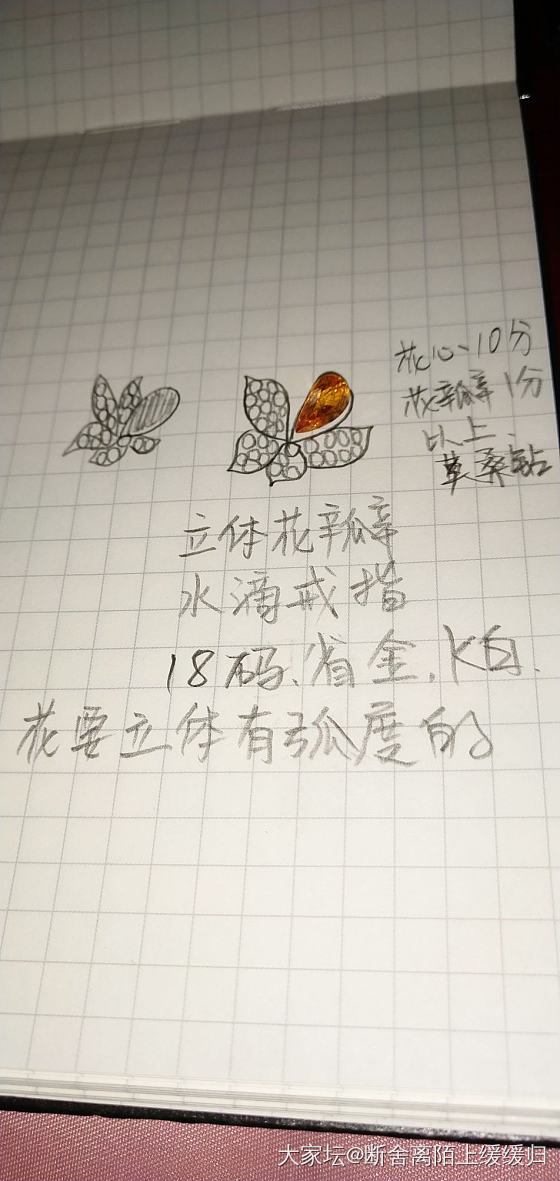 花心-10分
花瓣1分
以上.
莫桑钻
立体花瓣
水滴戒指
18码、省金,K白.
花要立体有弧度的
大家坛@断舍离陌上缓缓归